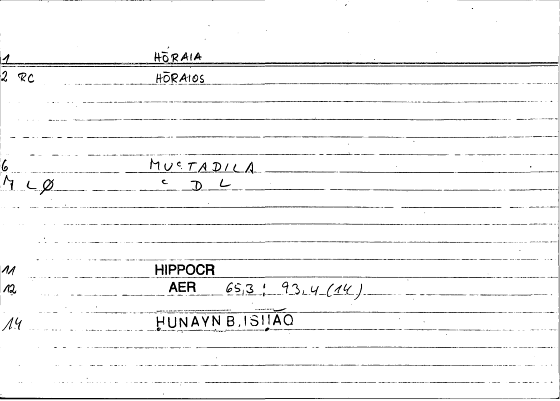 1 HŌRAIA
2 RC HŌRAIOS
6 MUᶜTADILA
M L Ø ᶜ D L
11 HIPPOCR
12 AER 65,3 : 93,4 (14)
14 ḤUNAYN B. ISḤĀQ